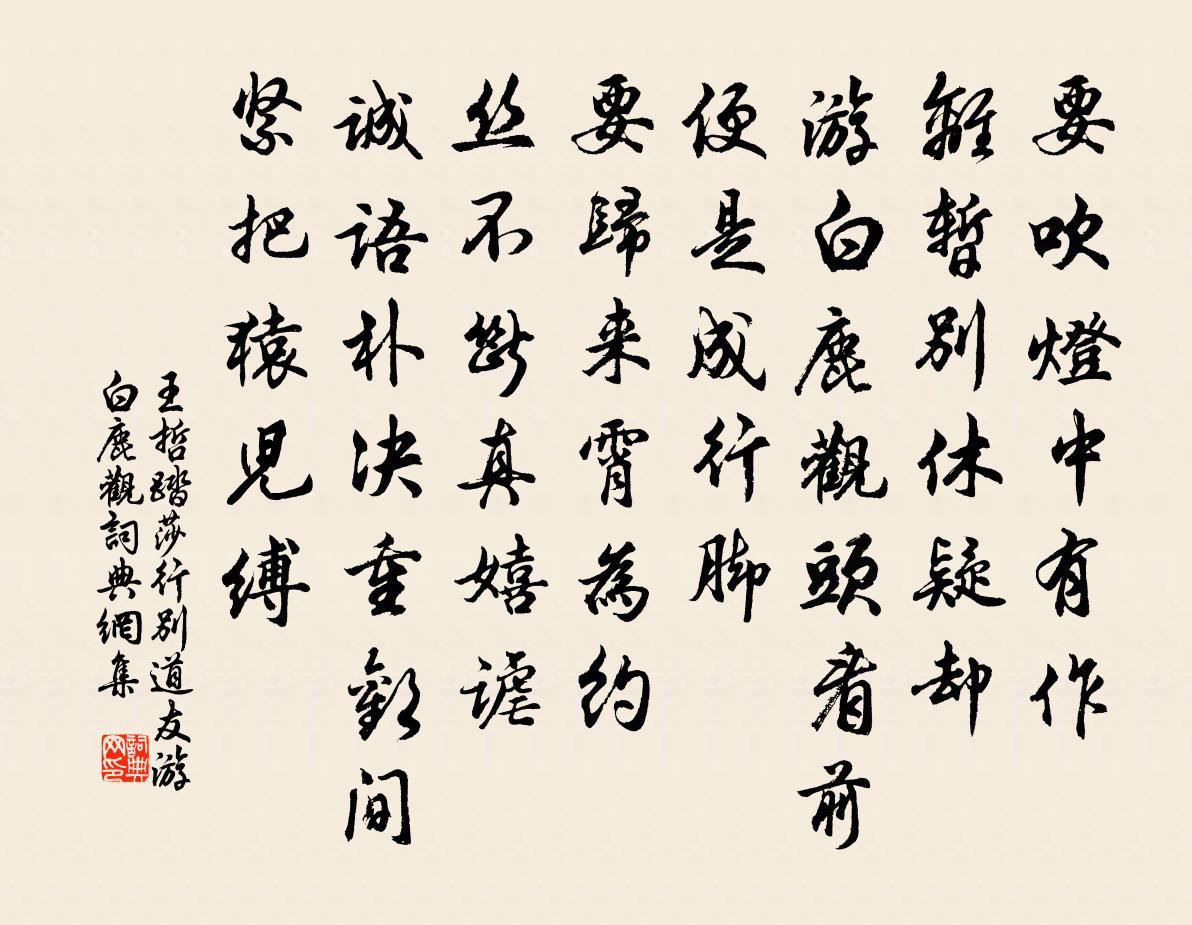 要吹燈中有作
難暫別休疑却
游白鹿觀頭看前
便是成行脚
要歸来霄為約
丝不斷真嬉謔
誠語朴決重勸間
緊把猿児縛
王哲踏莎行別道友游
白鹿觀詞典網集
詞典
网印